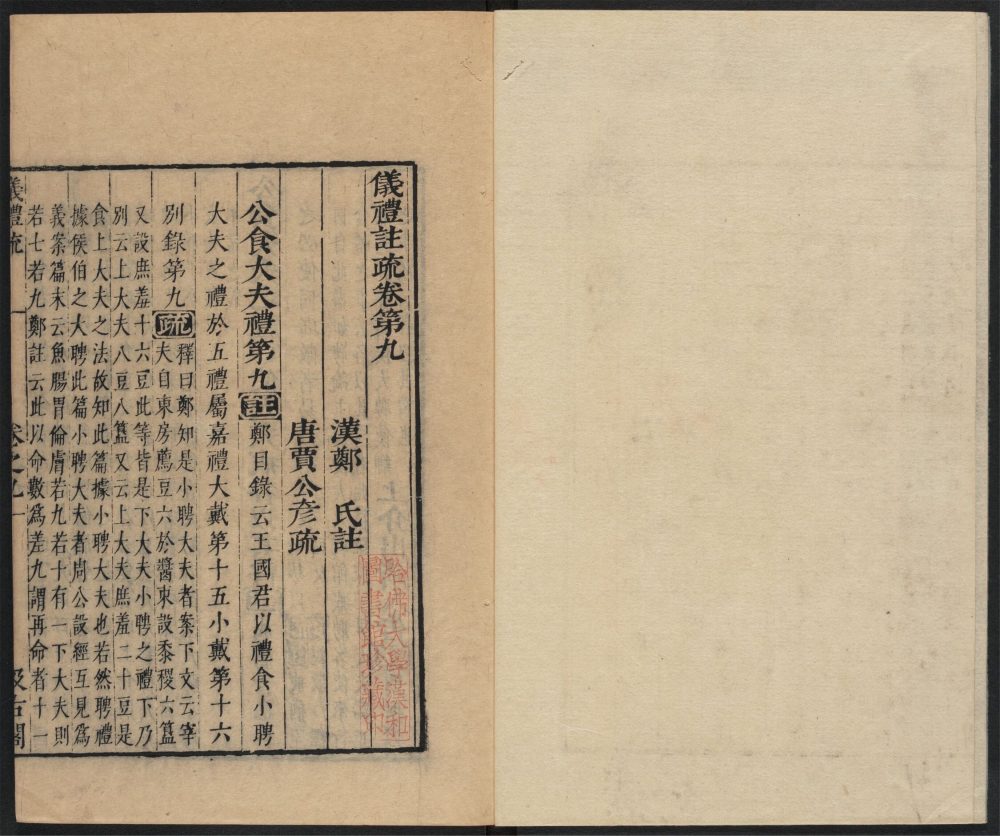 儀禮註疏卷第九
漢鄭 氏註
唐賈公彥疏
哈佛大學漢和
圖書館珍藏印
公食大夫禮第九註鄭目錄云王國君以禮食小聘
大夫之禮於五禮屬嘉禮大戴第十五小戴第十六
別錄第九疏釋曰鄭知是小聘大夫者案下文云宰
夫自東房薦豆六於醬東設黍稷六簋
又設庶羞十六豆此等皆是下大夫小聘之禮下乃
別云上大夫八豆八簋又云上大夫庶羞二十豆是
食上大夫之法故知此篇據小聘大夫也若然聘禮
據侯伯之大聘此篇小聘大夫者周公設經互見爲
義案篇末云魚腸胃倫膚若九若十有一下大夫則
若七若九鄭註云此以命數爲差九謂再命者十一
儀禮疏 卷之九 一 汲古閣